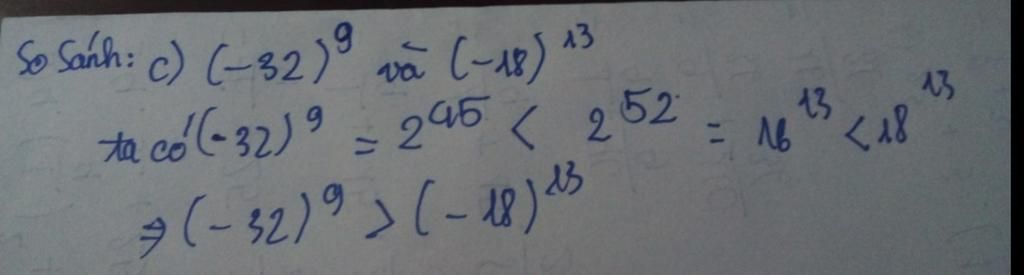 So Sánh: c) (-32)^9 và (-18)^13
ta có (-32)^9 = 2^45 < 2^52 = 16^13 < 18^13
⇒ (-32)^9 > (-18)^13